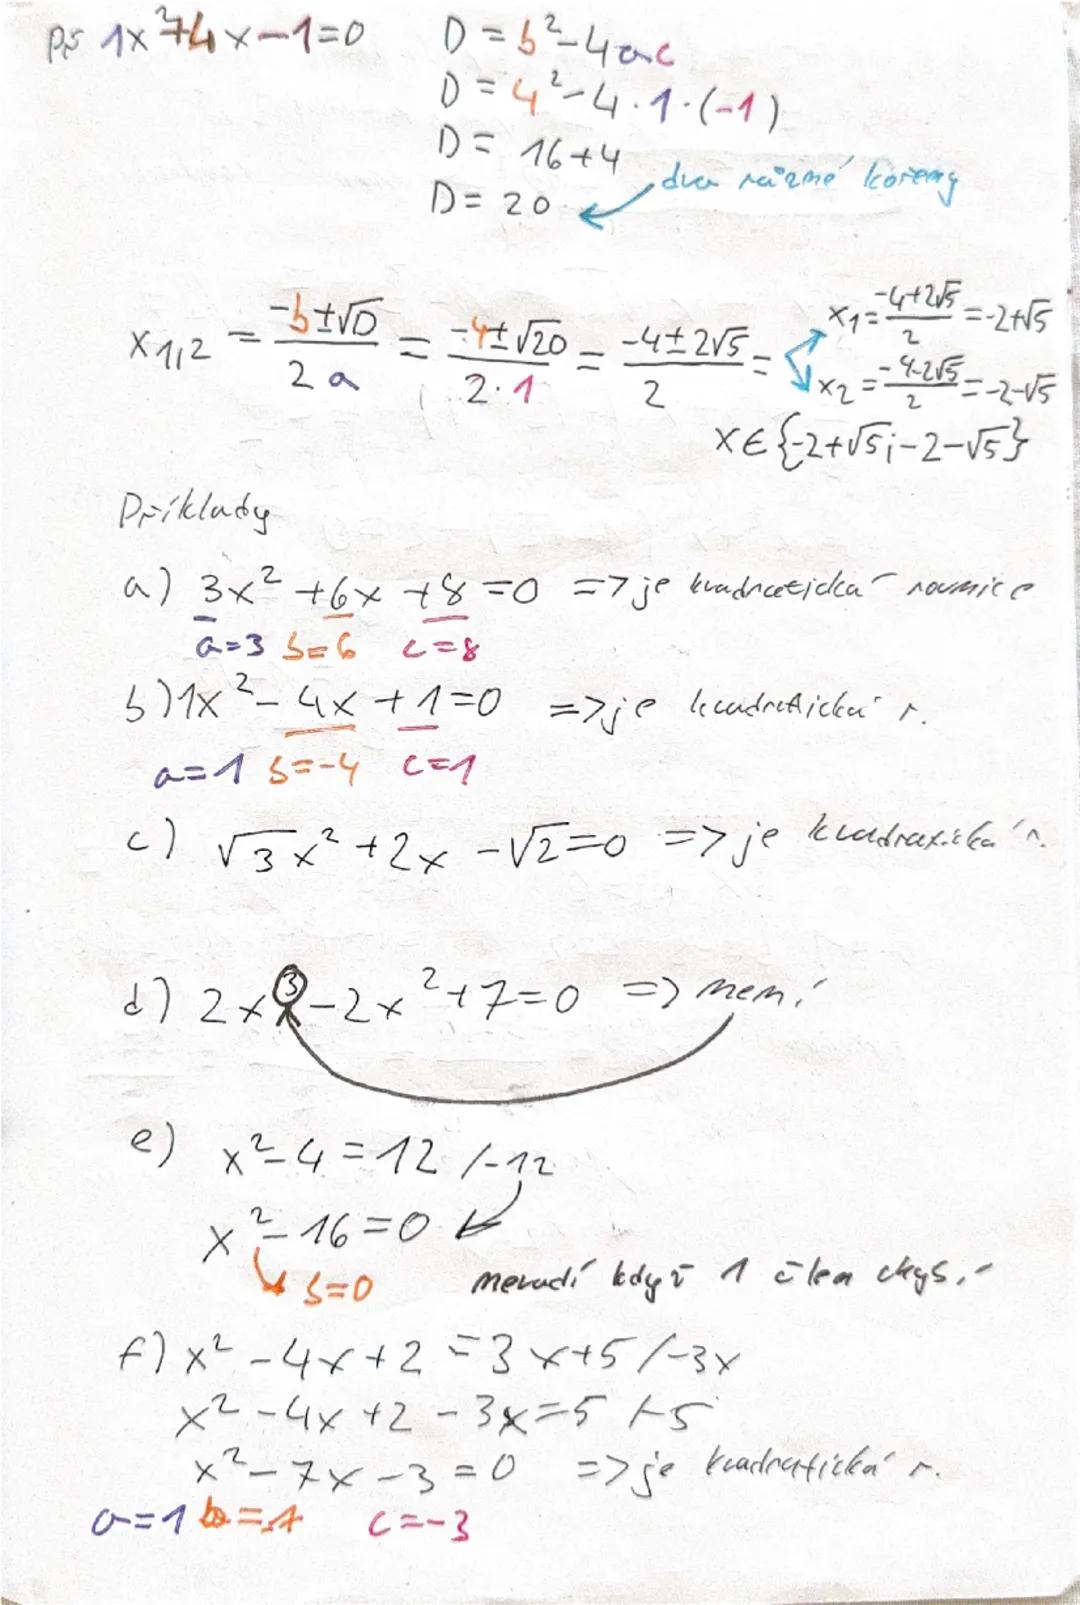 Př 1x²+4x-1=0
D = b²-4ac
D = 4²-4·1·(-1)
D = 16+4
D = 20
dva různé kořeny
x1,2 = -b±√D / 2a = -4±√20 / 2·1 = -4±2√5 / 2 =
x1 = -4+2√5 / 2 = -2+√5
x2 = -4-2√5 / 2 = -2-√5
x∈{-2+√5;-2-√5}
Příklady
a) 3x² +6x +8 =0 => je kvadratická rovnice
a=3 b=6 c=8
b) 1x² - 4x + 1=0 => je kvadratická r.
a=1 b=-4 c=1
c) √3x² +2x -√2=0 => je kvadratická r.
d) 2x³-2x²+7=0 => není
e) x²-4=12 /-12
x²-16=0
b=0
nevadí když 1 člen chybí
f) x² -4x+2 = 3x+5 /-3x
x² -4x +2 - 3x=5 /-5
x² - 7x -3 = 0 => je kvadratická r.
a=1 b= c=-3